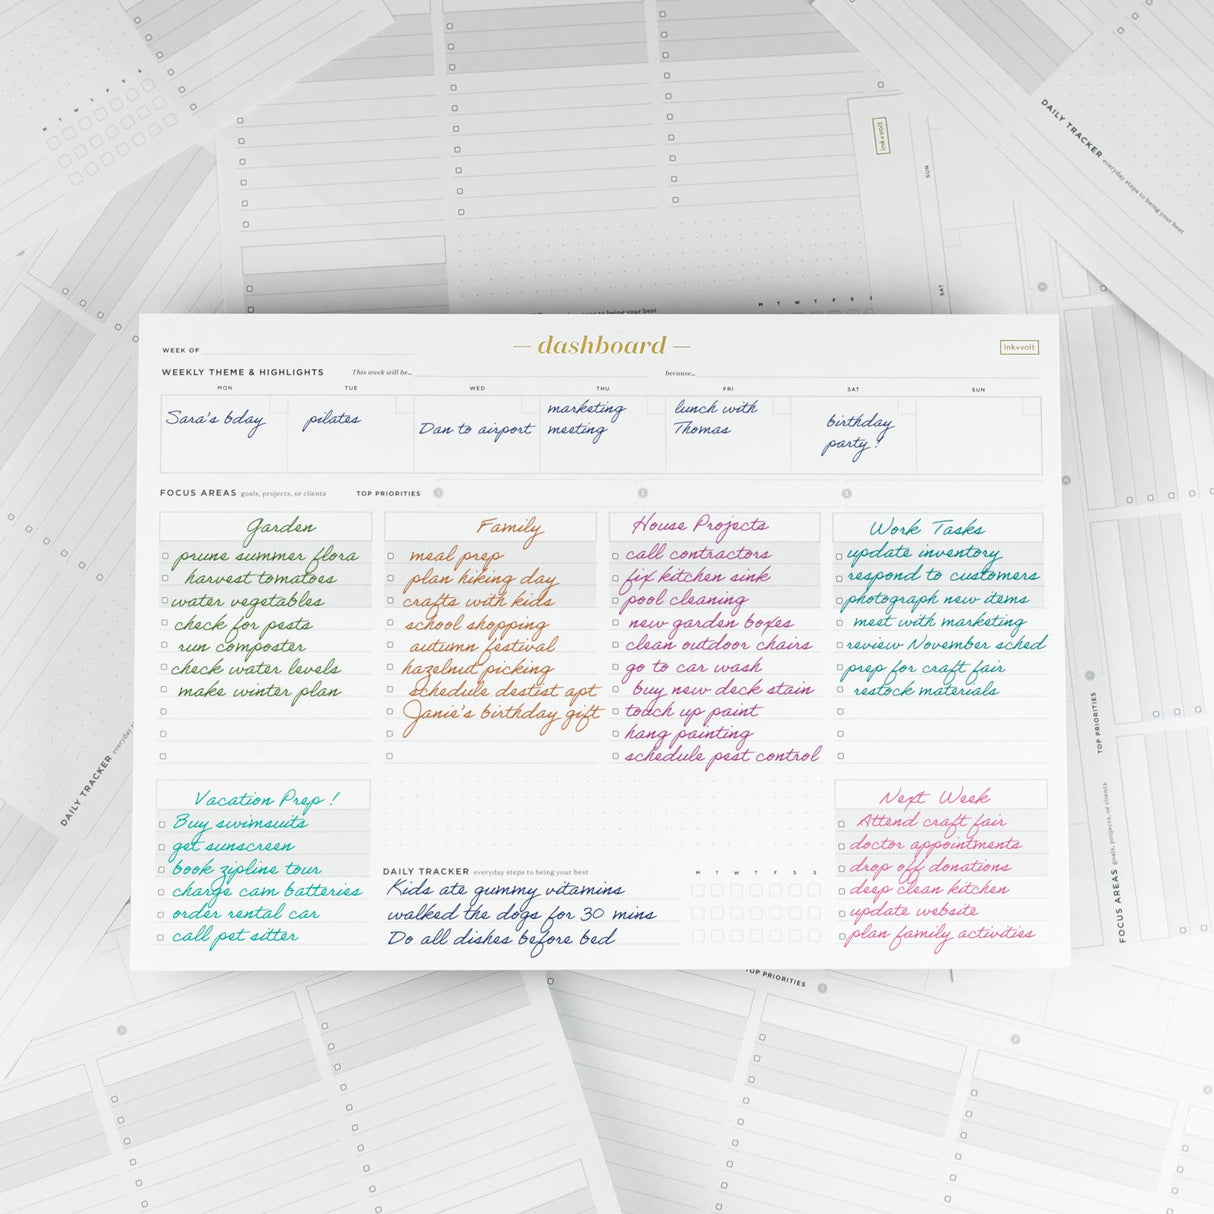 M T W T F S S
DAILY TRACKER everyday steps to being your best
ink+volt
SUN
SAT
being your best
M T W T F S S
WEEK OF
dashboard
ink+volt
WEEKLY THEME & HIGHLIGHTS This week will be... because...
MON TUE WED THU FRI SAT SUN
Sara's bday
pilates
Dan to airport
marketing
meeting
lunch with
Thomas
birthday
party!
FOCUS AREAS goals, projects, or clients TOP PRIORITIES 1 2 3
Garden
prune summer flora
harvest tomatoes
water vegetables
check for pests
run composter
check water levels
make winter plan
Family
meal prep
plan hiking day
crafts with kids
school shopping
autumn festival
hazelnut picking
schedule destist apt
Janie's birthday gift
House Projects
call contractors
fix kitchen sink
pool cleaning
new garden boxes
clean outdoor chairs
go to car wash
buy new deck stain
touch up paint
hang painting
schedule pest control
Work Tasks
update inventory
respond to customers
photograph new items
meet with marketing
review November sched
prep for craft fair
restock materials
Vacation Prep!
Buy swimsuits
get sunscreen
book zipline tour
charge cam batteries
order rental car
call pet sitter
DAILY TRACKER everyday steps to being your best M T W T F S S
Kids ate gummy vitamins
walked the dogs for 30 mins
Do all dishes before bed
Next Week
Attend craft fair
doctor appointments
drop off donations
deep clean kitchen
update website
plan family activities
DAILY TRACKER everyday
TOP PRIORITIES
FOCUS AREAS goals, projects, or clients
TOP PRIORITIES